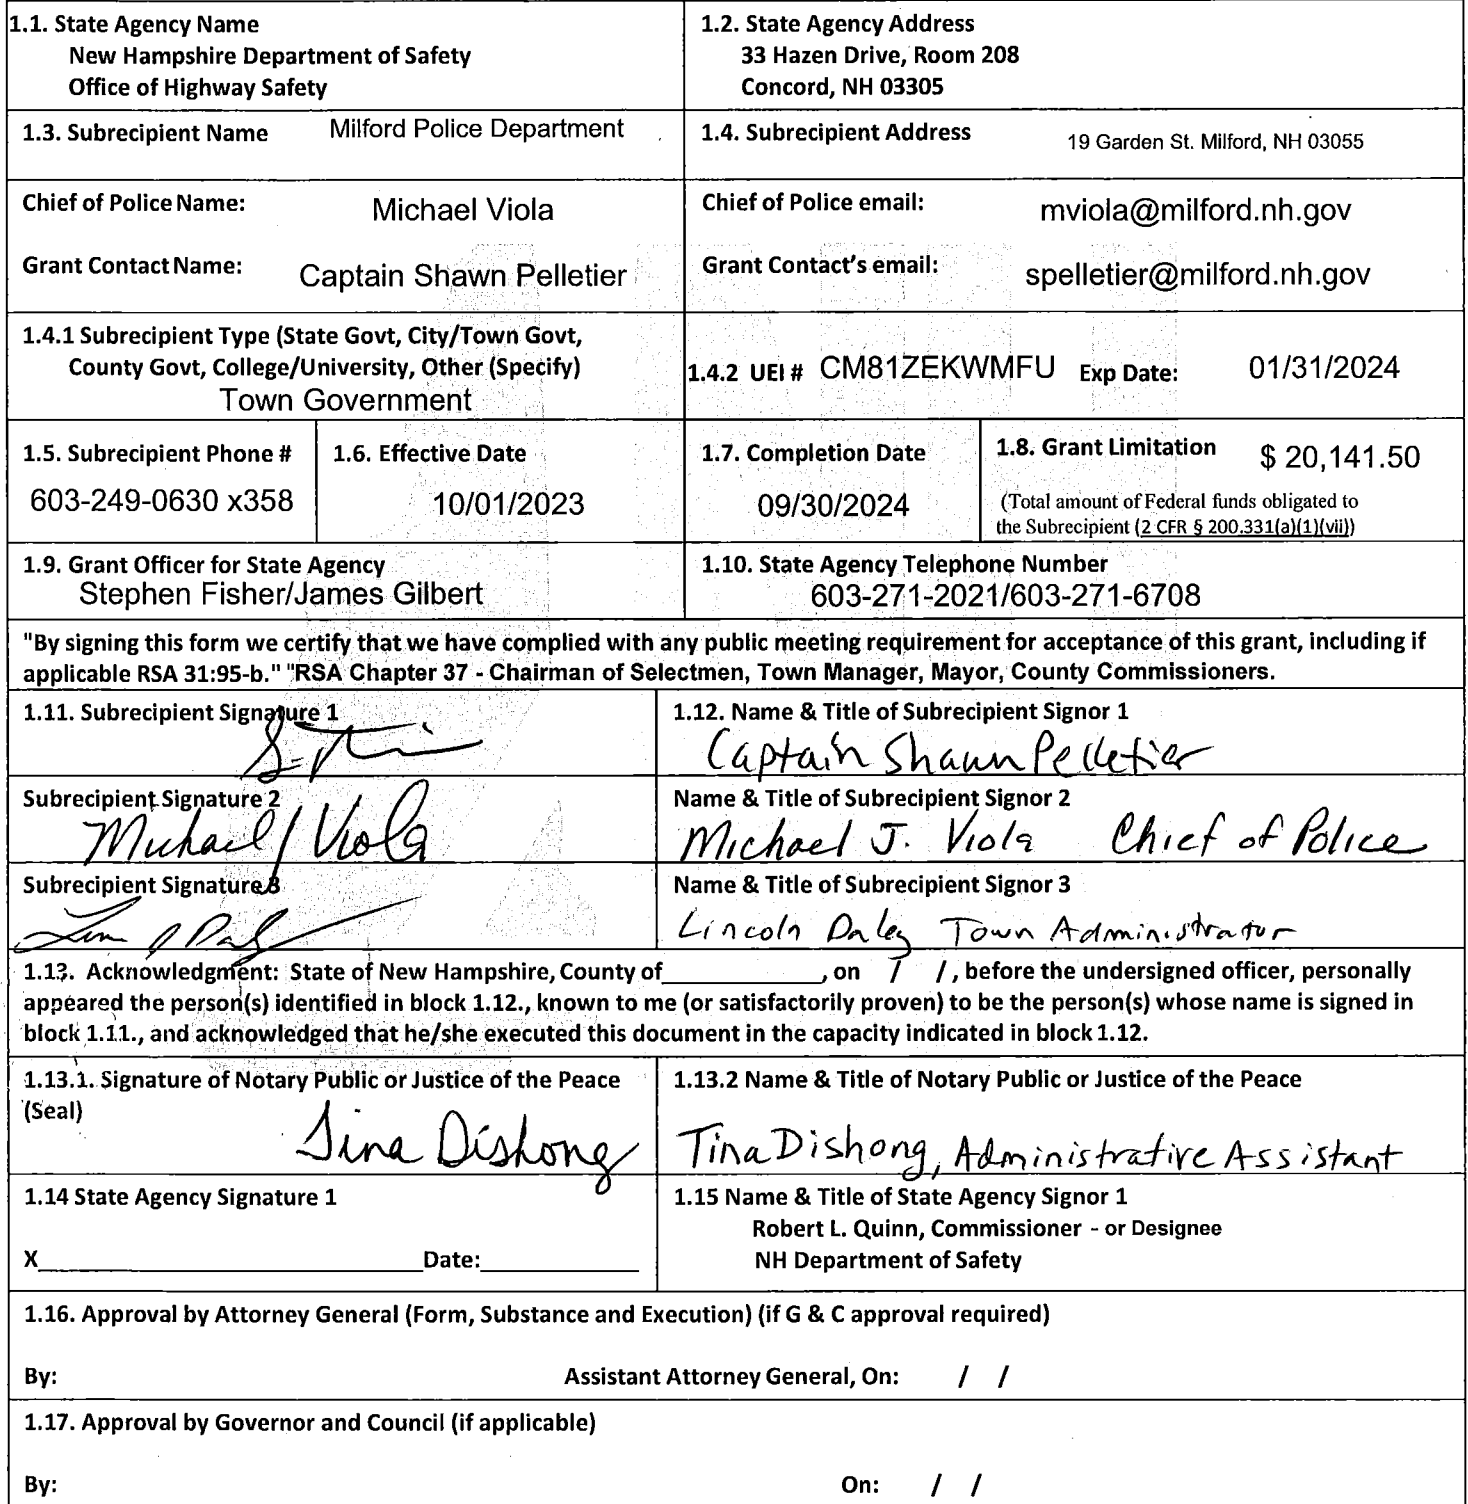 1.1. State Agency Name
New Hampshire Department of Safety
Office of Highway Safety
1.2. State Agency Address
33 Hazen Drive, Room 208
Concord, NH 03305
1.3. Subrecipient Name Milford Police Department
1.4. Subrecipient Address 19 Garden St. Milford, NH 03055
Chief of Police Name: Michael Viola
Grant Contact Name: Captain Shawn Pelletier
Chief of Police email: mviola@milford.nh.gov
Grant Contact's email: spelletier@milford.nh.gov
1.4.1 Subrecipient Type (State Govt, City/Town Govt,
County Govt, College/University, Other (Specify)
Town Government
1.4.2 UEI # CM81ZEKWMFU Exp Date: 01/31/2024
1.5. Subrecipient Phone #
603-249-0630 x358
1.6. Effective Date
10/01/2023
1.7. Completion Date
09/30/2024
1.8. Grant Limitation $ 20,141.50
(Total amount of Federal funds obligated to
the Subrecipient (2 CFR § 200.331(a)(1)(vii))
1.9. Grant Officer for State Agency
Stephen Fisher/James Gilbert
1.10. State Agency Telephone Number
603-271-2021/603-271-6708
"By signing this form we certify that we have complied with any public meeting requirement for acceptance of this grant, including if
applicable RSA 31:95-b." "RSA Chapter 37 - Chairman of Selectmen, Town Manager, Mayor, County Commissioners.
1.11. Subrecipient Signature 1
1.12. Name & Title of Subrecipient Signor 1
Captain Shawn Pelletier
Subrecipient Signature 2
Michael J Viola
Name & Title of Subrecipient Signor 2
Michael J. Viola Chief of Police
Subrecipient Signature 3
Name & Title of Subrecipient Signor 3
Lincoln Daley Town Administrator
1.13. Acknowledgment: State of New Hampshire, County of__________, on / /, before the undersigned officer, personally
appeared the person(s) identified in block 1.12., known to me (or satisfactorily proven) to be the person(s) whose name is signed in
block 1.11., and acknowledged that he/she executed this document in the capacity indicated in block 1.12.
1.13.1. Signature of Notary Public or Justice of the Peace
(Seal)
Tina Dishong
1.13.2 Name & Title of Notary Public or Justice of the Peace
Tina Dishong, Administrative Assistant
1.14 State Agency Signature 1
X______________________________Date:____________
1.15 Name & Title of State Agency Signor 1
Robert L. Quinn, Commissioner - or Designee
NH Department of Safety
1.16. Approval by Attorney General (Form, Substance and Execution) (if G & C approval required)
By: Assistant Attorney General, On: / /
1.17. Approval by Governor and Council (if applicable)
By: On: / /